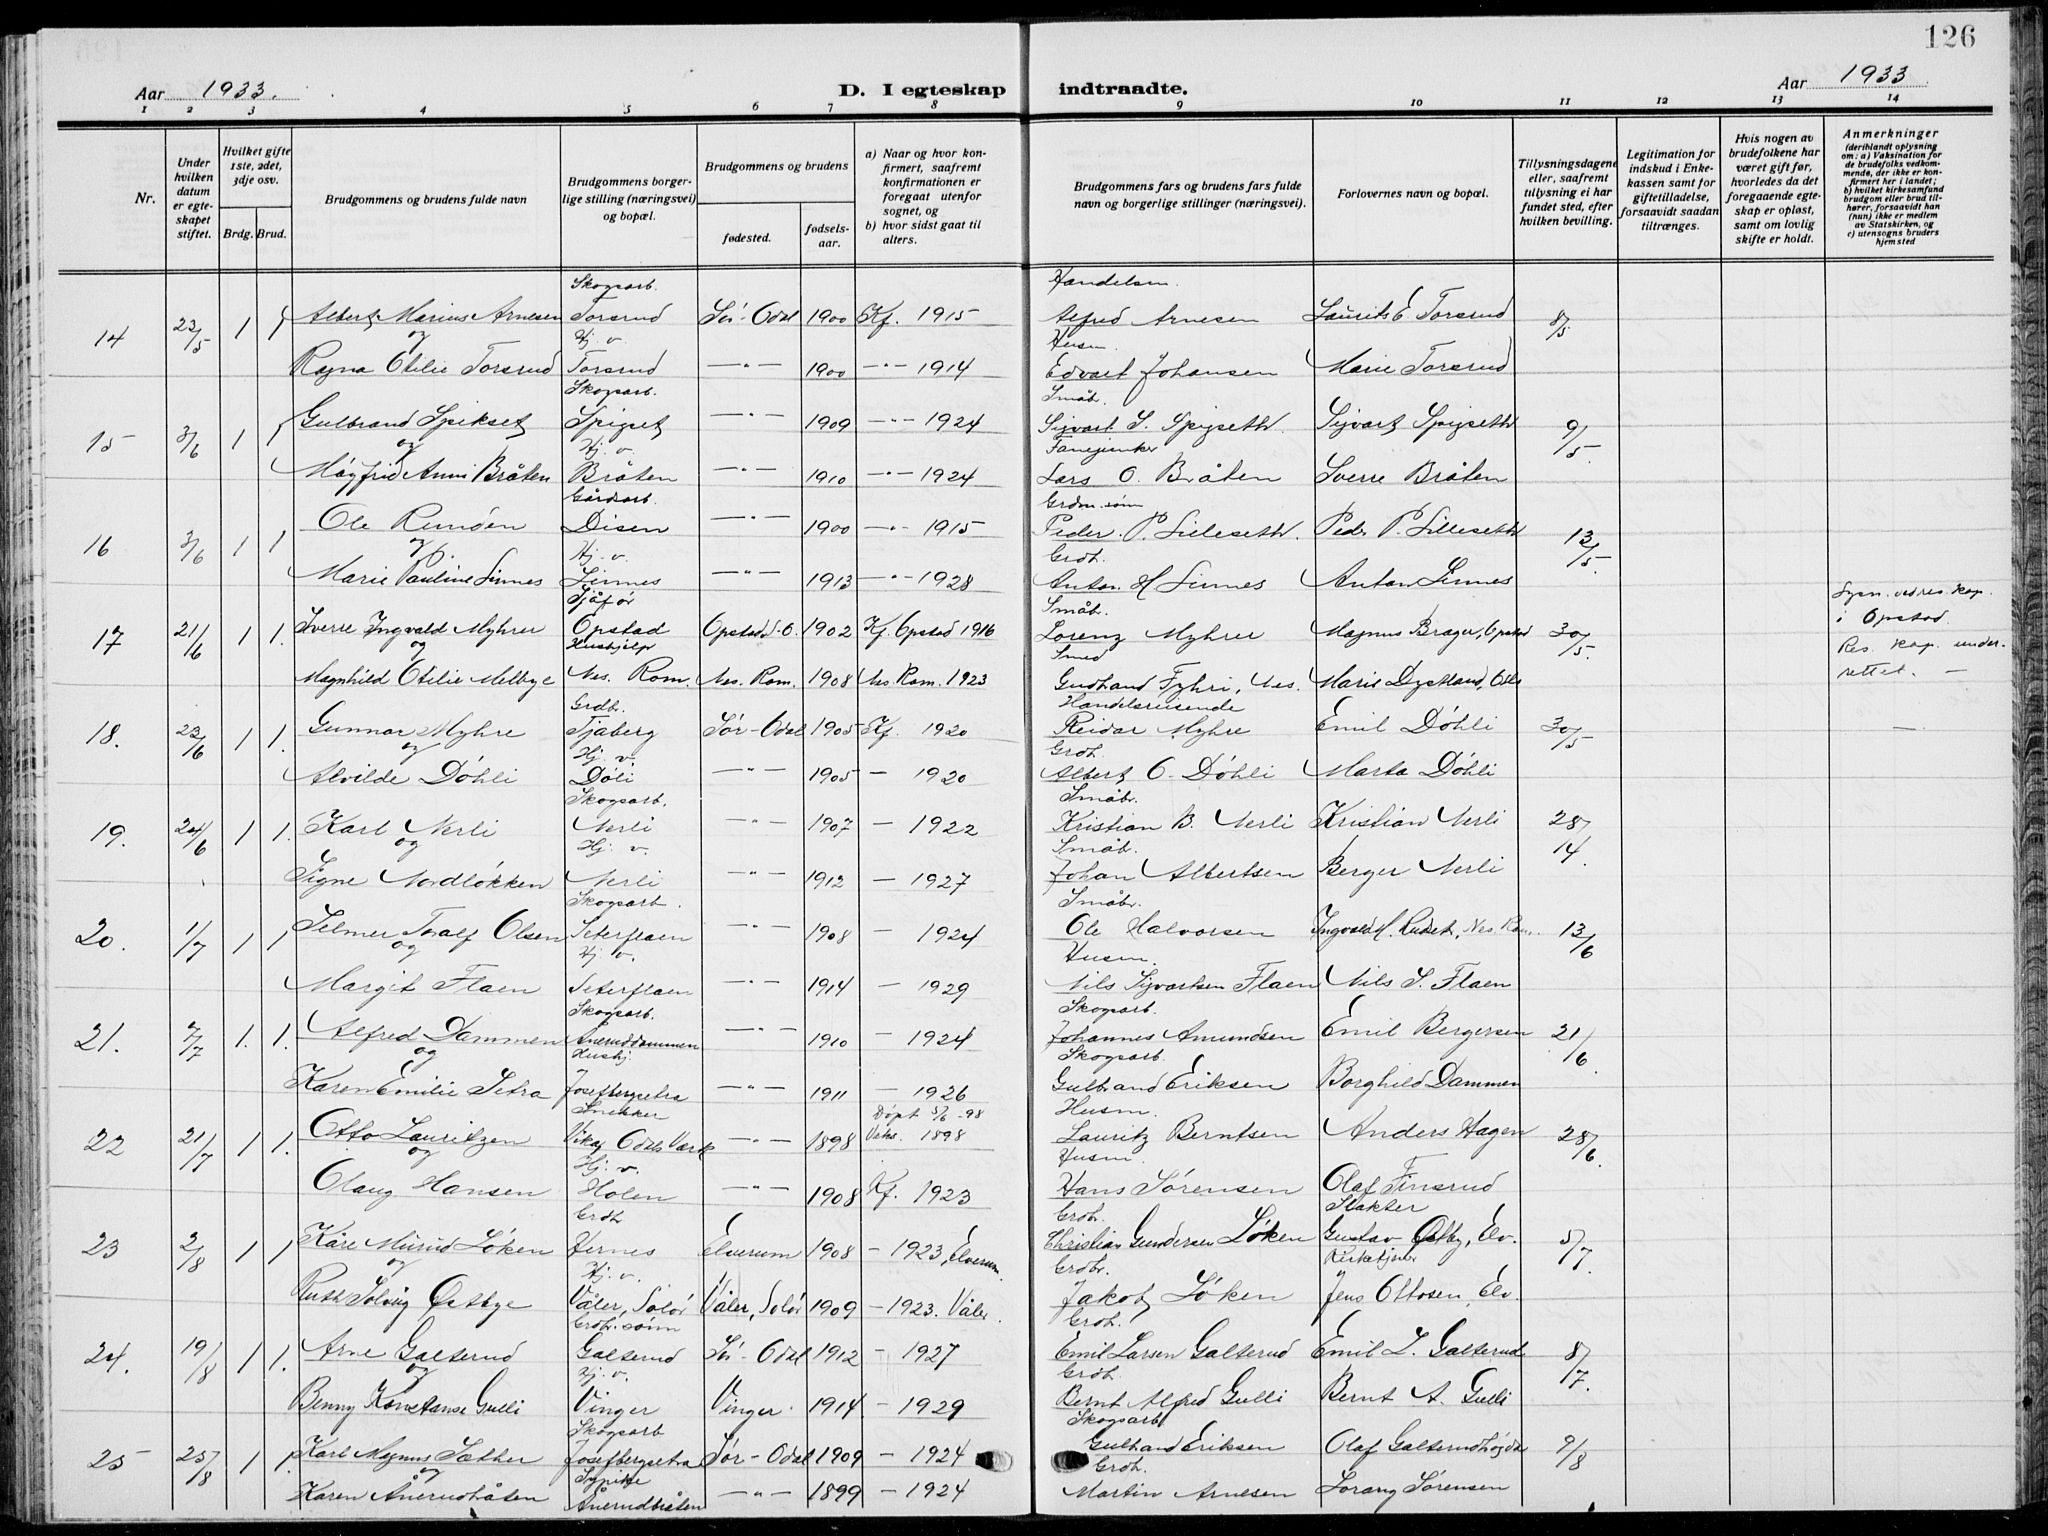 126
Aar 1933.
D. I egteskap indtraadte.
Aar 1933
1 2 3 4 5 6 7 8 9 10 11 12 13 14
Nr.
Under hvilken datum er egteskapet stiftet.
Hvilket gifte 1ste, 2det, 3dje osv.
Brdg. Brud.
Brudgommens og brudens fulde navn
Brudgommens borgerlige stilling (næringsvei) og bopæl.
Brudgommens og brudens
fødested.
fødselsaar.
a) Naar og hvor konfirmert, saafremt konfirmationen er foregaat utenfor sognet, og
b) hvor sidst gaat til alters.
Brudgommens fars og brudens fars fulde navn og borgerlige stillinger (næringsvei).
Forlovernes navn og bopæl.
Tillysningsdagene eller, saafremt tillysning ei har fundet sted, efter hvilken bevilling.
Legitimation for indskud i Enkekassen samt for giftetilladelse, forsaavidt saadan tiltrænges.
Hvis nogen av brudefolkene har været gift før, hvorledes da det foregaaende egteskap er opløst, samt om lovlig skifte er holdt.
Anmerkninger (deriblandt oplysning om: a) Vaksination for de brudefolks vedkommende, der ikke er konfirmert her i landet; b) hvilket kirkesamfund brudgom eller brud tilhører, forsaavidt han (hun) ikke er medlem av Statskirken, og c) utensogns bruders hjemsted
Skogsarb. Handelsm.
14 23/5 1 1 Albert Marius Arnesen Torsrud Sør-Odal 1900 Kf. 1915 Alfred Arnesen Laurits E Torsrud 8/5
og Hj. v. Husm.
Ragna Otilie Torsrud Torsrud —"— 1900 —"— 1914 Edvart Johansen Marie Torsrud
Skogsarb. Småb.
15 3/6 1 1 Gulbrand Spikset Spigset —"— 1909 —"— 1924 Sigvart S. Spigseth Sigvart Spigseth 9/5
og Hj. v. Fanejunker
Magfrid Anni Bråten Bråten —"— 1910 —"— 1924 Lars O. Bråten Sverre Bråten
Gårdsarb. Grdm.sønn
16 3/6 1 1 Ole Rundén Disen —"— 1900 —"— 1915 Peder P. Lilleseth Peder P. Lilleseth 13/5.
og Hj. v. Grdb.
Marie Pauline Sinnes Sinnes —"— 1913 —"— 1928 Anton H Sinnes Anton Sinnes
Sjåfør Småb.
17 21/6 1 1. Sverre Ingvald Myhrer Opstad Opstad S.O. 1902 Kf. Opstad 1916 Lorenz Myhrer Magnus Brager, Opstad 30/5. Lysn. ved res. kap. i Opstad. Res. kap. underrettet. —
og Hushjelp Smed
Magnhild Otilie Melbye Nes. Rom. Nes. Rom. 1908 Nes. Rom. 1923 Gudbrand Fyhri, Nes. Marie Dystland, Oslo
Grdb. Handelsreisende
18. 23/6 1 1. Gunnar Myhre Tjaberg Sør-Odal 1905 Kf. 1920 Reidar Myhre Emil Döhli 30/5 —
og Hj. v. Grdb.
Alvilde Döhli Döli —"— 1905 — 1920 Albert O. Döhli Marta Döhli
Skogsarb. Småbr.
19. 24/6 1 1. Karl Nerli Nerli —"— 1907 — 1922 Kristian B. Nerli Kristian Nerli 28/14.
og Hj. v. Småb.
Signe Nordløkken Nerli —"— 1912 — 1927 Johan Albertsen Berger Nerli
Skogsarb. Småbr.
20. 1/7 1 1 Selmer Toralf Olsen Seterflaen —"— 1908 — 1924 Ole Halvorsen Ingvald H. Rudet, Nes Rom. 13/6
og Hj. v. Husm.
Margit Flaen Seterflaen —"— 1914 — 1929 Nils Sigvartsen Flaen Nils S. Flaen
Skogsarb. Skogsarb.
21. 7/7 1. 1. Alfred Dammen Åneruddammen —"— 1910 1924 Johannes Amundsen Emil Bergersen 21/6
og Hushj. Skogsarb.
Karen Emilie Setra Josefbergsetra —"— 1911 — 1926 Gulbrand Eriksen Borghild Dammen
Snekker Døpt 5/6-98 Husm.
22 21/7 1 1. Otto Lauritzen Vika, Odals Verk —"— 1898 Vaks. 1898 Lauritz Berntsen Anders Hagen 28/6.
og Hj. v. Husm.
Olaug Hansen Holen —"— 1908 Kf. 1923 Hans Sørensen Olaf Finsrud
Grdb Grdb. Slakter
23 2/8 1 1 Kåre Murud Løken Hernes Elverum 1908 — 1923, Elverum. Christian Gundersen Løken Gustav Østby, Elv. 5/7.
og Hj. v. Grdbr. Kirketjener
Ruth Solveig Østbye Våler, Solør Våler, Solør 1909 — 1923. Våler. Jakob Løken Jens Ottosen, Elv.
Grdb. sønn Grdb.
24. 19/8 1 1. Arne Galterud Galterud Sør-Odal 1912 — 1927 Emil Larsen Galterud Emil L. Galterud 8/7.
og Hj. v. Grdb.
Benny Konstanse Gulli Vinger Vinger 1914 — 1929 Bernt Alfred Gulli Bernt A. Gulli
Skogsarb Skogsarb
25 25/8 1 1. Karl Magnus Sæther Josefbergsetra Sør-Odal 1909 — 1924 Gulbrand Eriksen Olaf Galterudhøgda 9/8
og Sypike Grdb.
Karen Ånerudbråten Ånerudbråten —"— 1899 — 1924 Martin Arnesen Lorang Sørensen